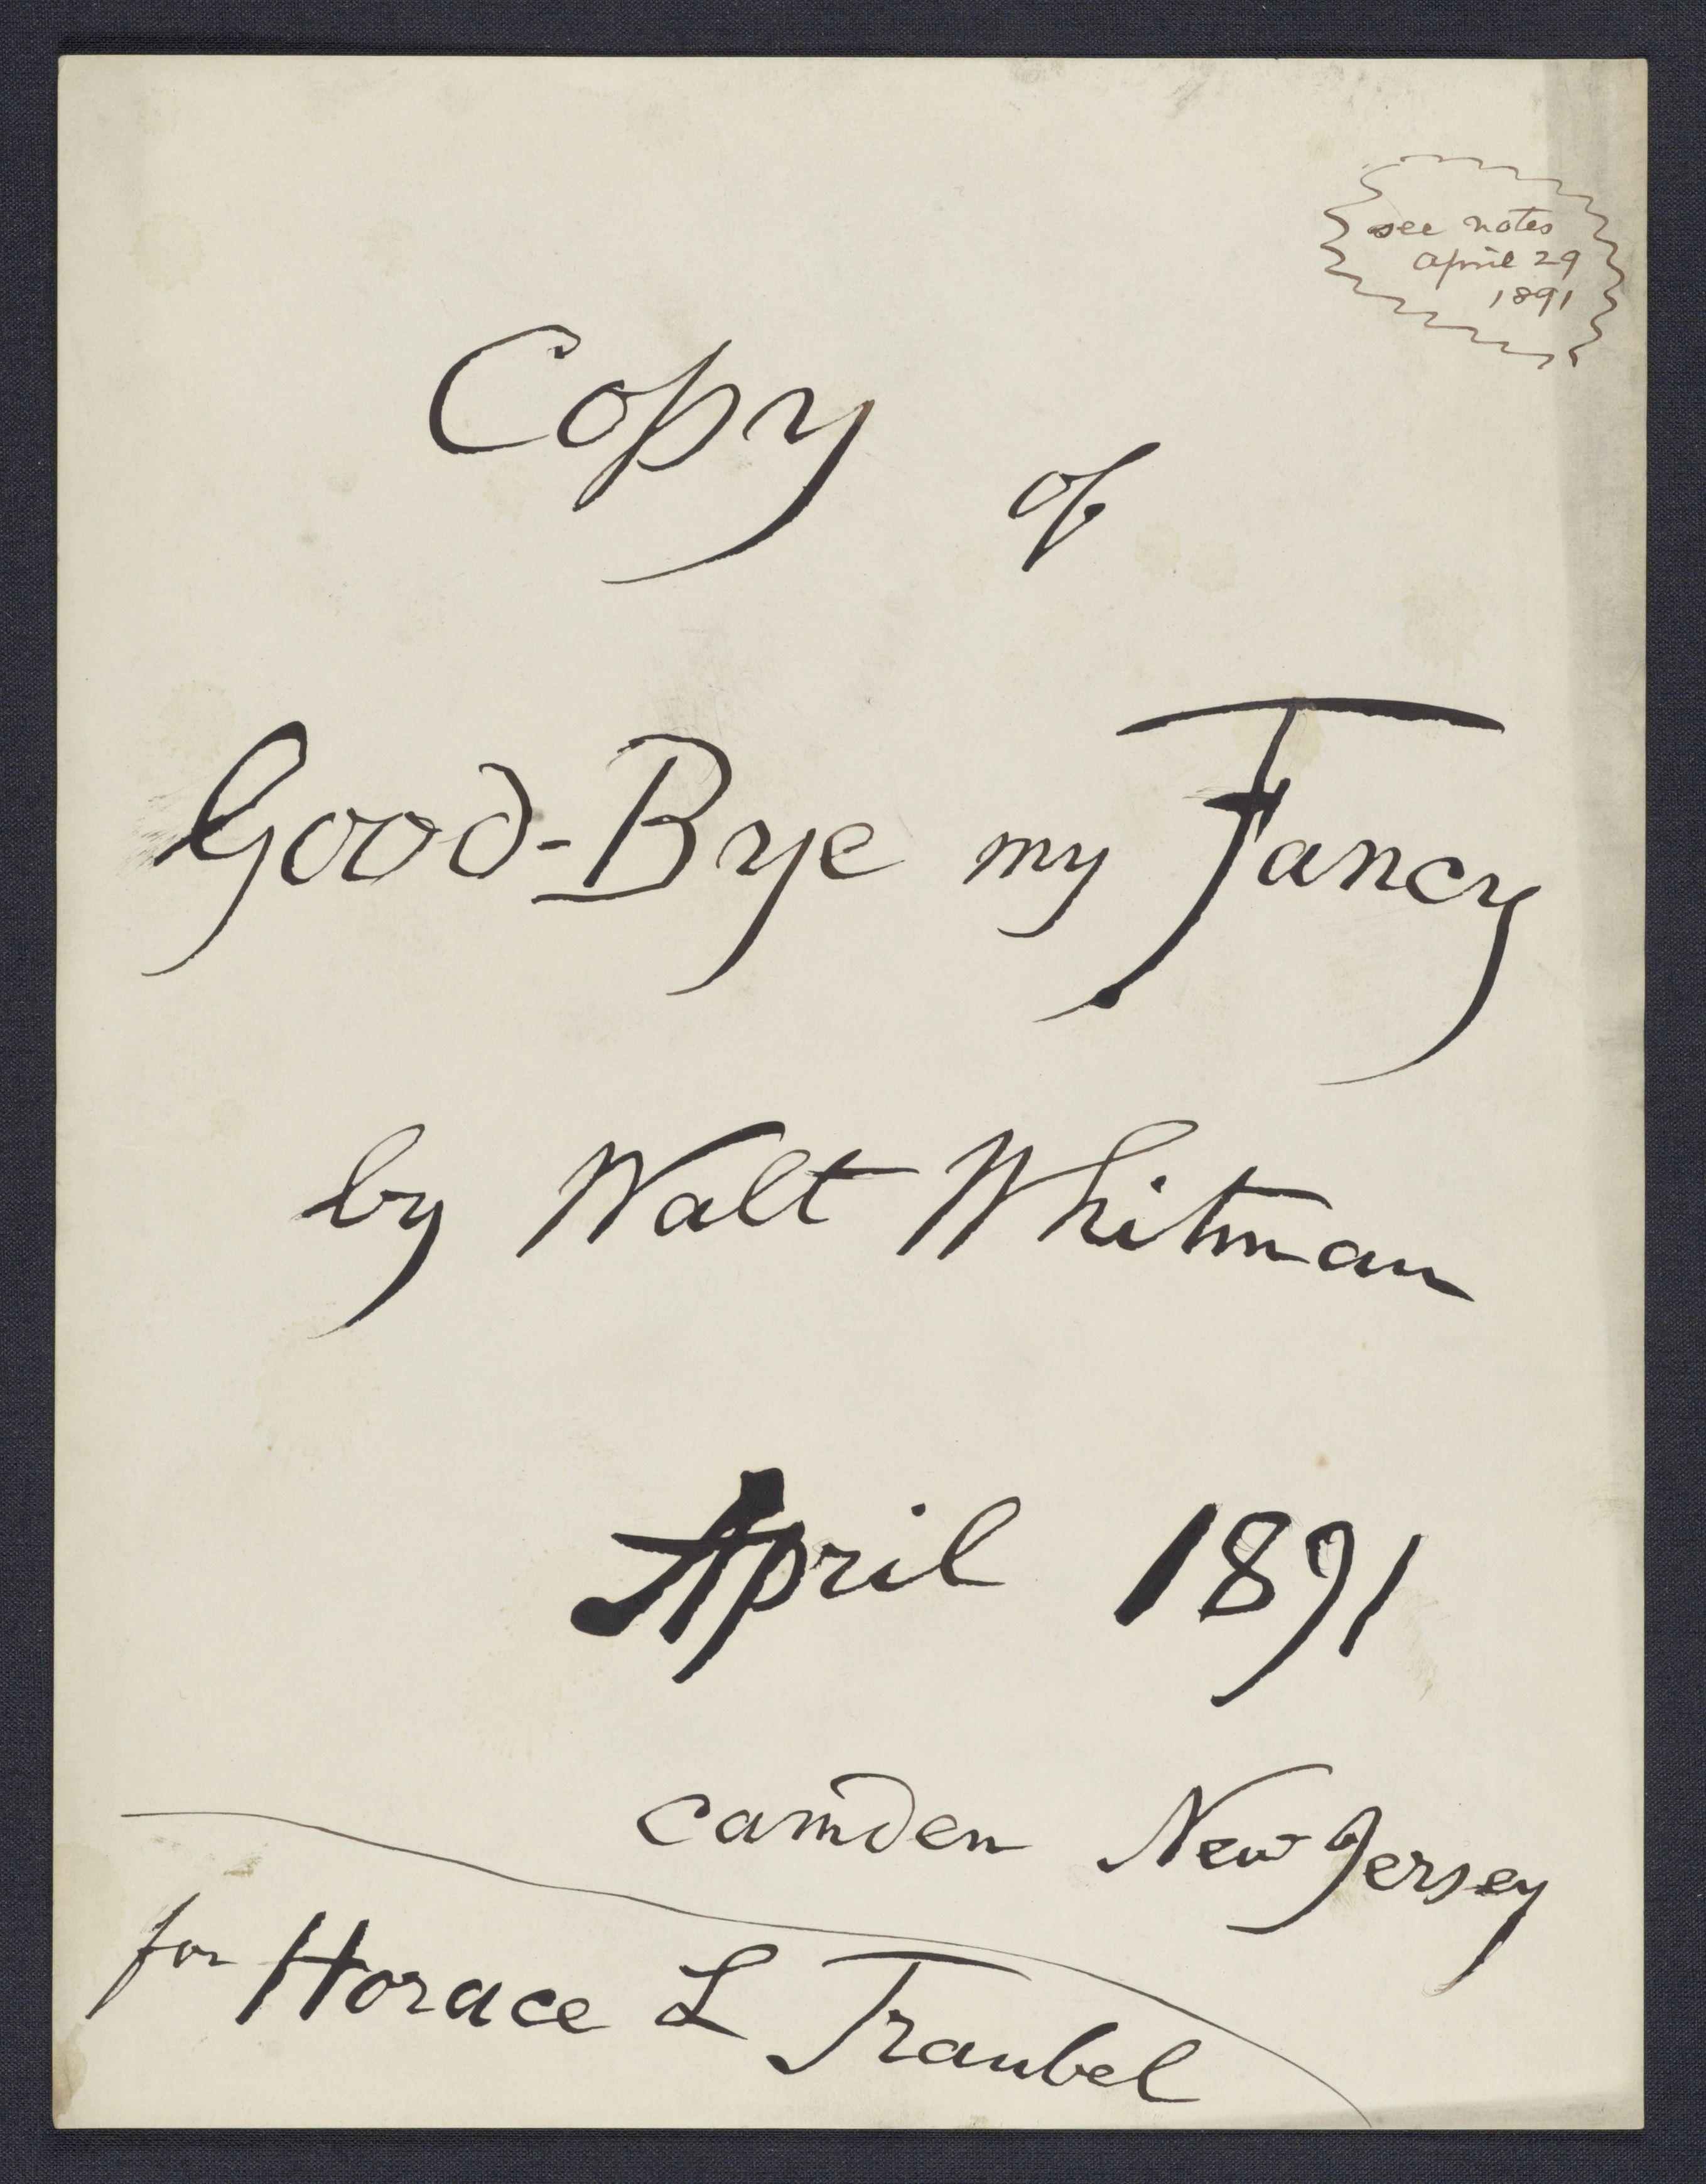 see notes
april 29
1891
Copy of
Good-Bye my Fancy
by Walt Whitman
April 1891
camden New Jersey
for Horace L Traubel